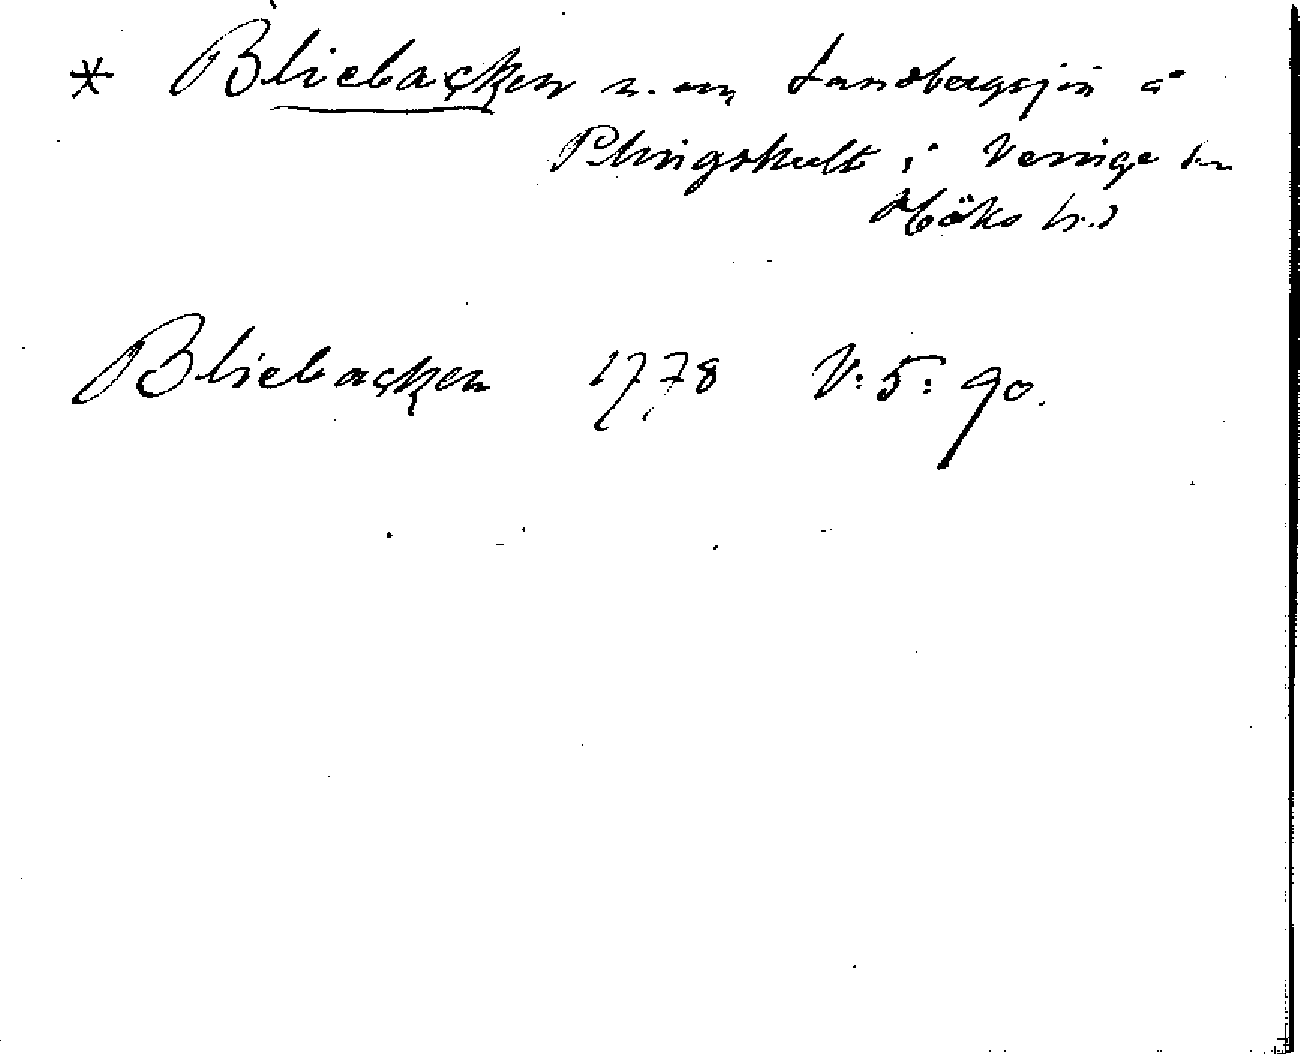 * Bliebacken n. om Sandbergsjön å
Plingshult i Veinge sn
Höks hd
Bliebacken 1778 V: 5: 90.